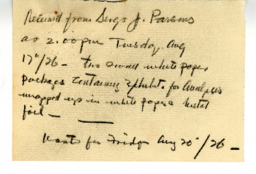 Received from Sergt J. Parsons
as 2.00 pm Tuesday Aug
17th/26 - two small white paper
packages containing exhibits for analysis
wrapped up in white paper & metal
foil -
Wants for Friday Aug 20th/26 -